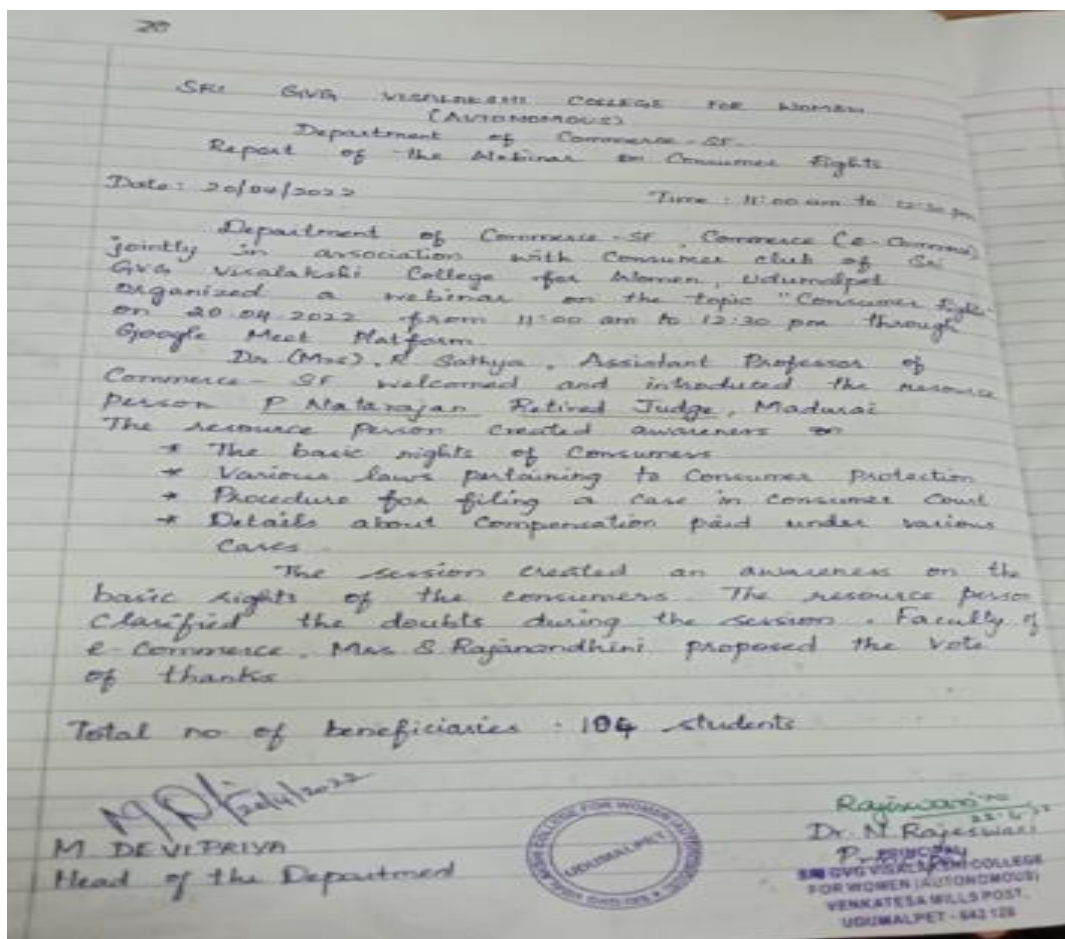 20
SRI GVG VISALAKSHI COLLEGE FOR WOMEN
(AUTONOMOUS)
Department of Commerce - SF
Report of the Webinar on Consumer Rights
Date: 20/04/2022 Time: 11:00 am to 12:30 pm
Department of Commerce - SF, Commerce (e-Commerce)
jointly in association with Consumer club of Sri
GVG Visalakshi College for Women, Udumalpet
organized a webinar on the topic "Consumer Rights"
on 20.04.2022 from 11:00 am to 12:30 pm through
Google Meet Platform
Dr (Mrs). R Sathya, Assistant Professor of
Commerce - SF welcomed and introduced the resource
person P Natarajan Retired Judge, Madurai
The resource person created awareness on
* The basic rights of Consumers
* Various laws pertaining to Consumer Protection
* Procedure for filing a case in Consumer Court
* Details about Compensation paid under various
Cases
The session created an awareness on the
basic rights of the consumers. The resource person
Clarified the doubts during the session. Faculty of
e-Commerce, Mrs S. Rajanandhini proposed the vote
of thanks
Total no of beneficiaries : 104 students
20/4/2022
M DEVIPRIYA
Head of the Department
COLLEGE FOR WOMEN (AUTONOMOUS)
UDUMALPET
Rajeswari N
22.4.22
Dr. N. Rajeswari
PRINCIPAL
SRI GVG VISALAKSHI COLLEGE
FOR WOMEN (AUTONOMOUS)
VENKATESA MILLS POST,
UDUMALPET - 642 128